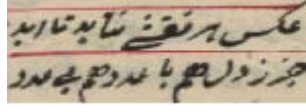 عکس هر نقشی نتابد تا ابد
جز ز دل هم با عدد هم بی عدد